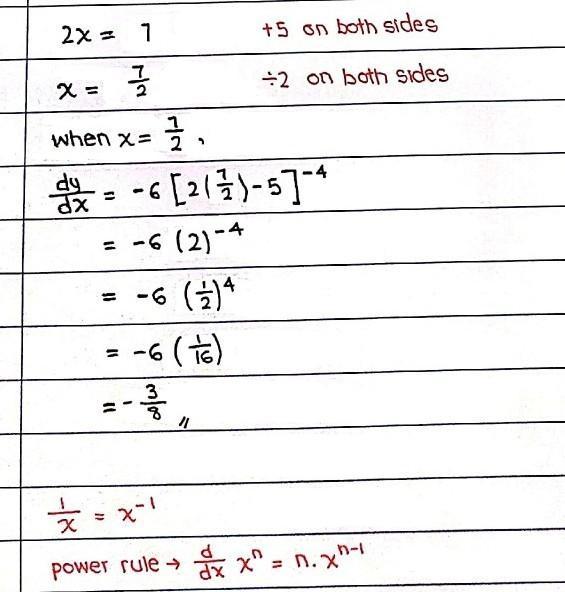 2x = 7 +5 on both sides
x = 7/2 ÷2 on both sides
when x = 7/2 ,
dy/dx = -6 [2(7/2)-5]^-4
= -6 (2)^-4
= -6 (1/2)^4
= -6 (1/16)
= - 3/8 //
1/x = x^-1
power rule → d/dx x^n = n.x^n-1